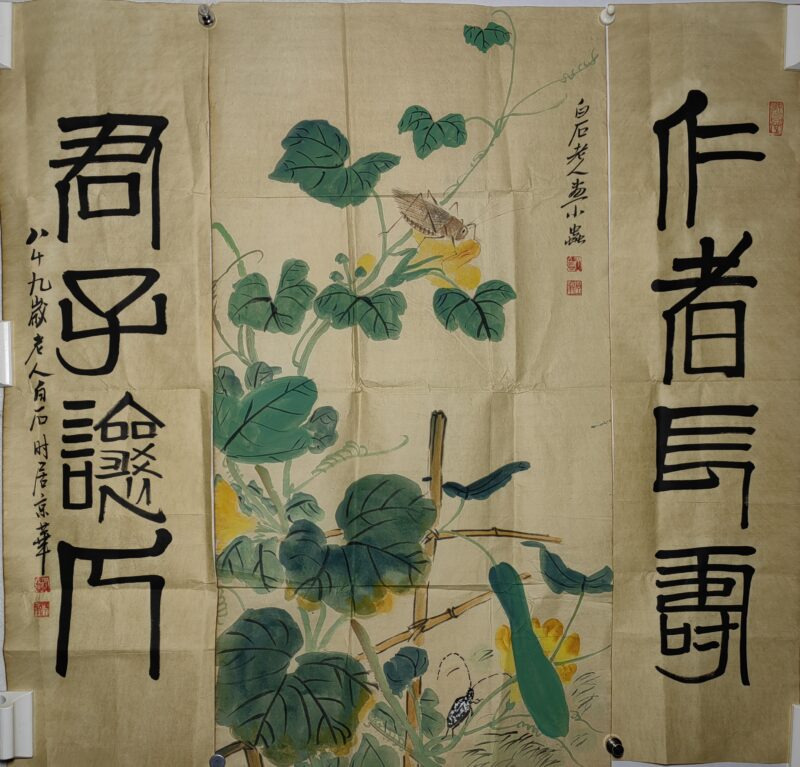 仁者長壽
白石老人畫小蟲
君子
八十九歲老人白石时居京華